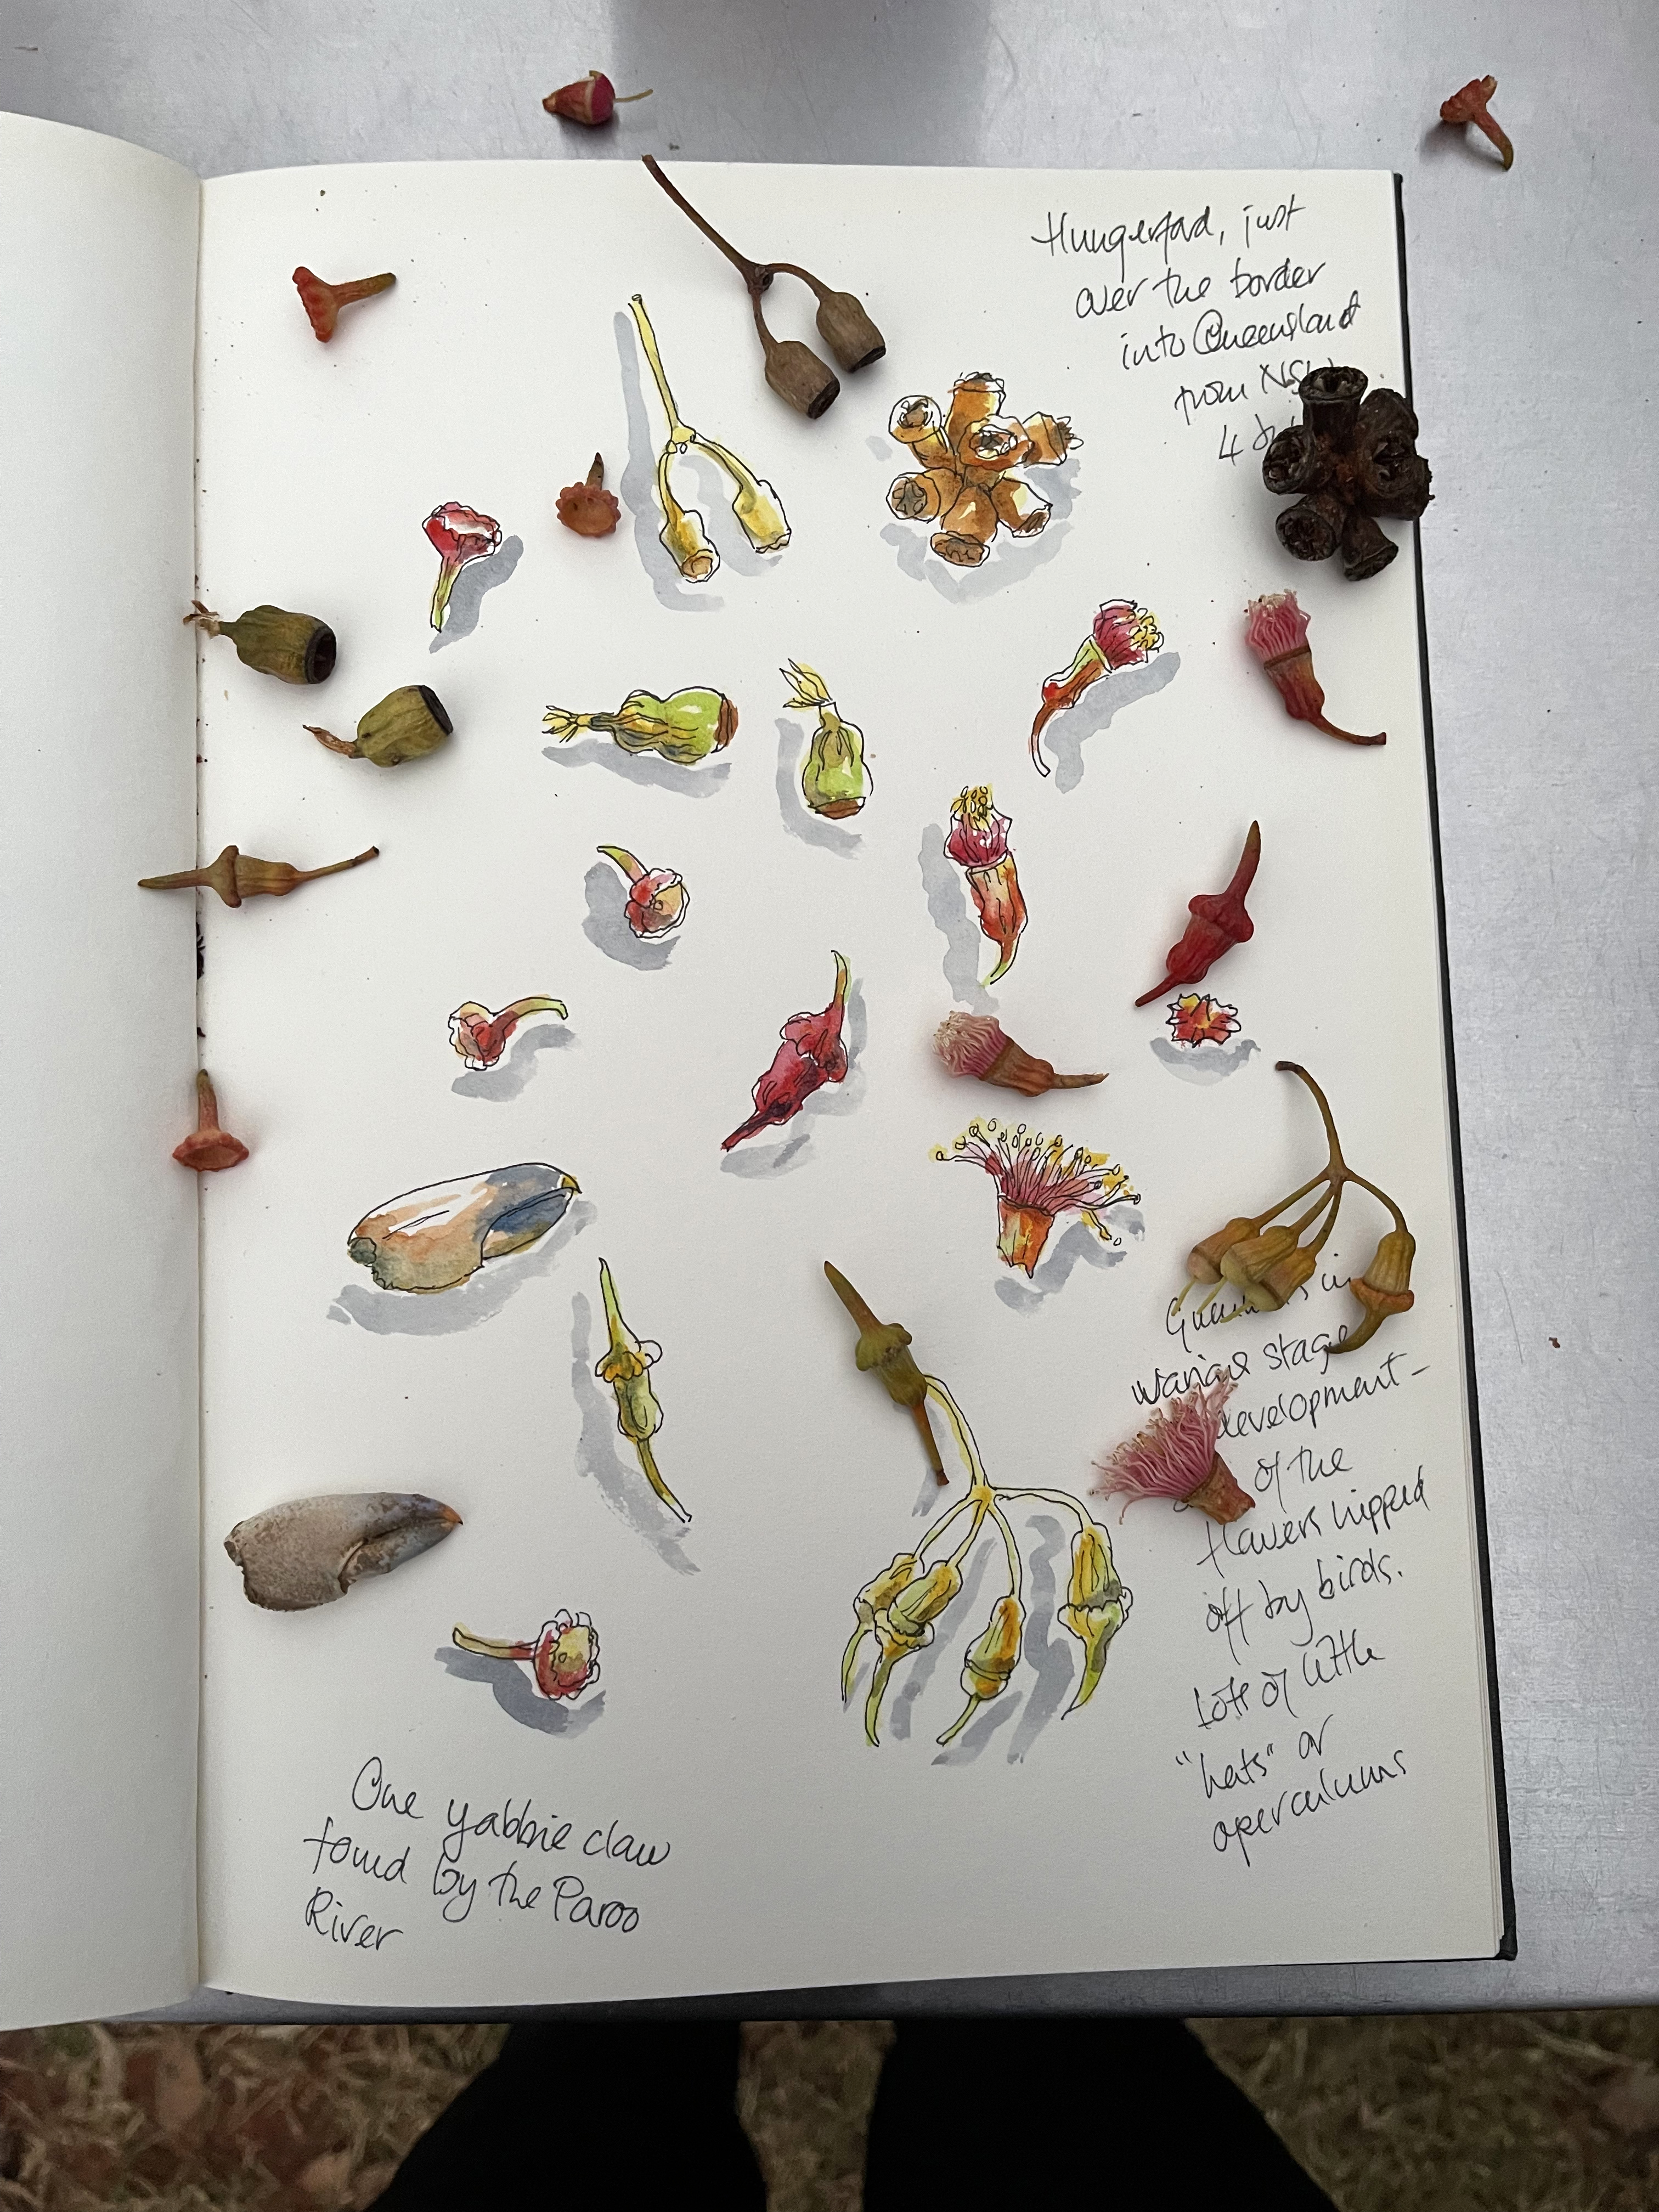 Hungerford, just
over the border
into Queensland
from NSW
4
Gumnuts in
various stages
development -
of the
flowers nipped
off by birds.
Lots of little
"hats" or
operculums
One yabbie claw
found by the Paroo
River